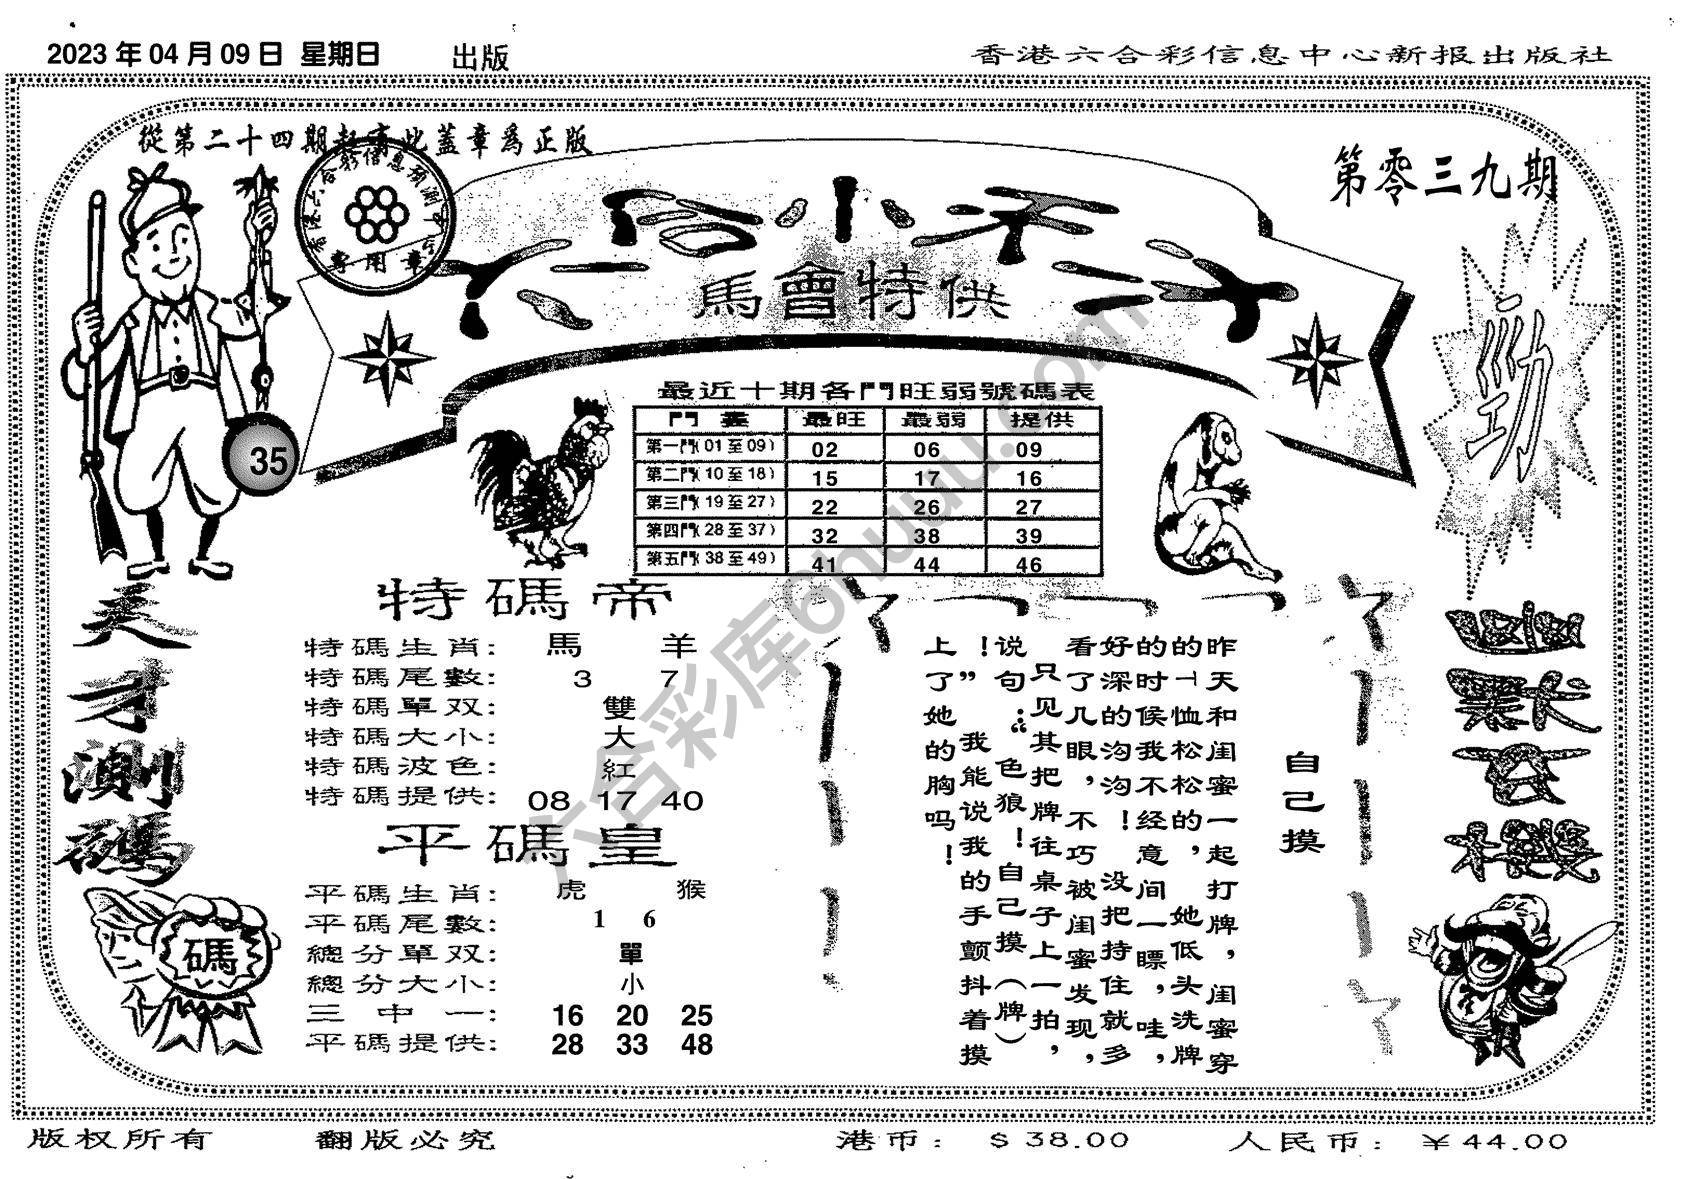 2023年04月09日 星期日 出版
香港六合彩信息中心新报出版社
從第二十四期起有此蓋章爲正版
第零三九期
專用章
馬會特供
勁
35
最近十期各門旺弱號碼表
門 最旺 最弱 提供
第一門(01至09) 02 06 09
第二門(10至18) 15 17 16
第三門(19至27) 22 26 27
第四門(28至37) 32 38 39
第五門(38至49) 41 44 46
天才測碼
碼
特碼帝
特碼生肖: 馬 羊
特碼尾數: 3 7
特碼單双: 雙
特碼大小: 大
特碼波色: 紅
特碼提供: 08 17 40
平碼皇
平碼生肖: 虎 猴
平碼尾數: 1 6
總分單双: 單
總分大小: 小
三中一: 16 20 25
平碼提供: 28 33 48
自己摸
昨天和闺蜜一起打牌,闺蜜穿
的T恤松松的,她低头洗牌
的时候我不经意间一瞟,哇,
好深的沟沟!没把持住就多
看了几眼,不巧被闺蜜发现,
只见其把牌往桌子上一拍,
说句:“色狼!自己摸(牌)
!”我能说我的手颤抖着摸
上了她的胸吗!
六合彩库6huuu.com
版权所有 翻版必究 港币: $38.00 人民币: ¥44.00